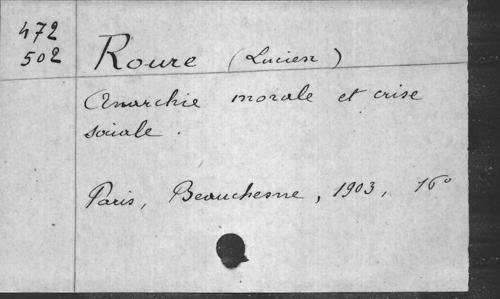 472
502
Roure (Lucien)
Anarchie morale et crise
sociale.
Paris, Beauchesne, 1903, 16°